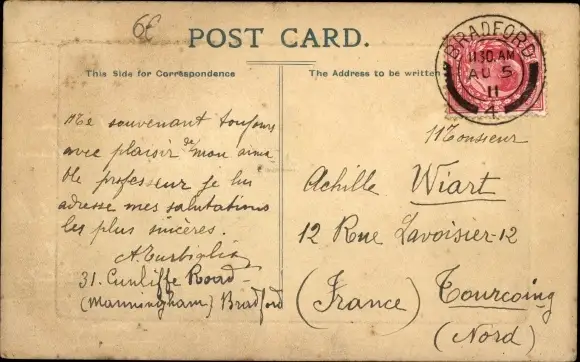 6€
POST CARD.
This Side for Correspondence
The Address to be written
BRADFORD
11.30.AM
AU 5
11
4
Me souvenant toujours
avec plaisir de mon aima
ble professeur je lui
adresse mes salutations
les plus sincères.
31. Cunliffe Road -
(Manningham) Bradford
Monsieur
Achille Wiart
12 Rue Lavoisier-12
(France) Tourcoing
(Nord)